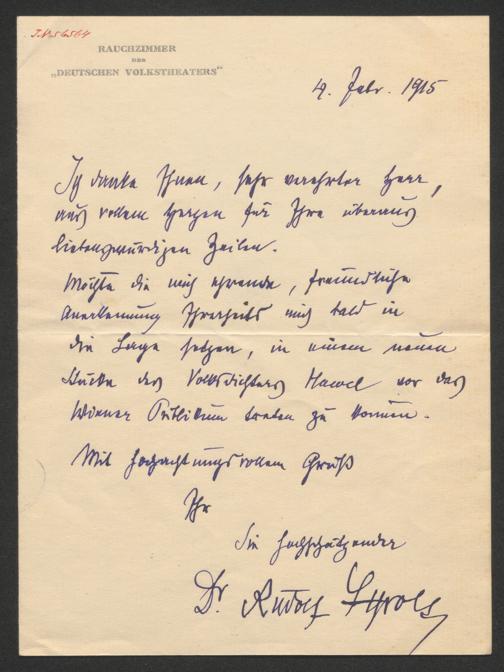 RAUCHZIMMER
DES
„DEUTSCHEN VOLKSTHEATERS“
4. Febr. 1915
Ich danke Ihnen, sehr verehrter Herr,
aus vollem Herzen für Ihre überaus
liebenswürdigen Zeilen.
Möchte die mich ehrende, freundliche
Anerkennung Ihrerseits mich bald in
die Lage setzen, in einem neuen
Stücke des Volksdichters Hawel vor das
Wiener Publikum treten zu können.
Mit hochachtungsvollem Gruß
Ihr
Sie hochschätzender
Dr. Rudolf Tyrolt